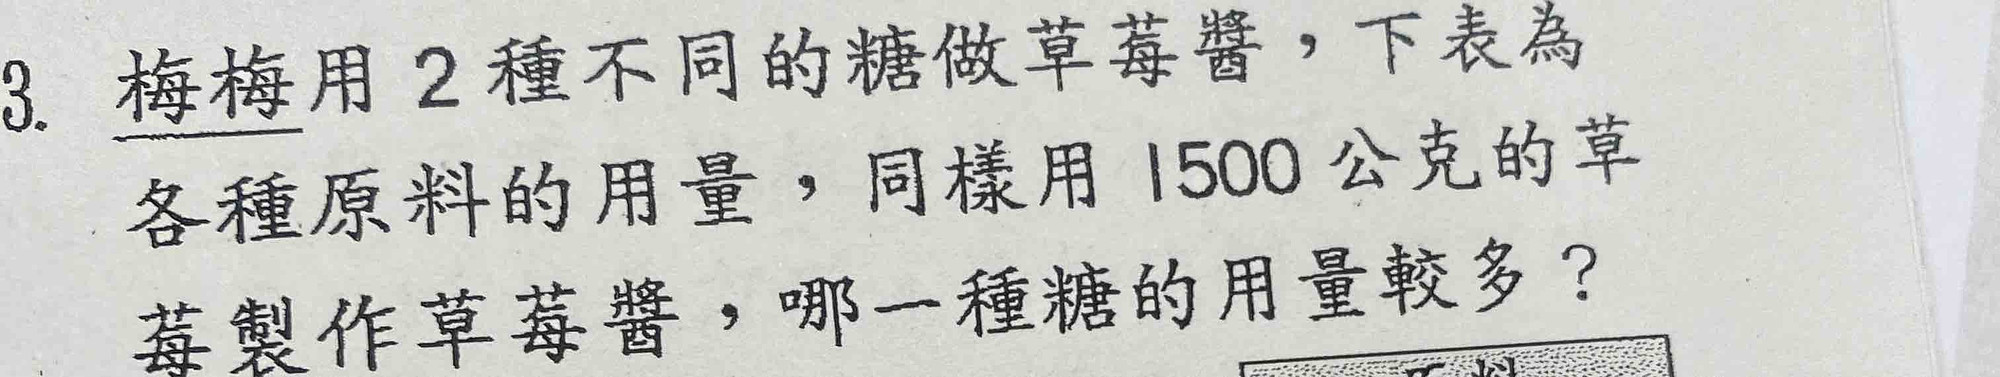 3. 梅梅用2種不同的糖做草莓醬，下表為
各種原料的用量，同樣用1500公克的草
莓製作草莓醬，哪一種糖的用量較多？
原料